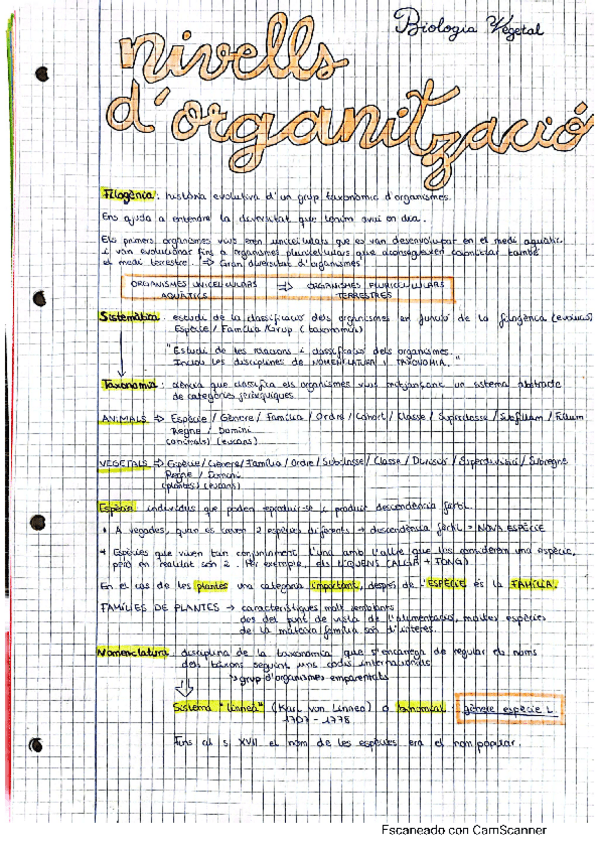 Biologia Vegetal
nivells
d'organització
Filogènia: història evolutiva d'un grup taxonòmic d'organismes.
Ens ajuda a entendre la diversitat que tenim avui en dia.
Els primers organismes vius eren unicel·lulars que es van desenvolupar en el medi aquàtic
i van evolucionar fins a organismes pluricel·lulars que aconsegueixen colonitzar també
el medi terrestre. ⇒ Gran diversitat d'organismes
ORGANISMES UNICEL·LULARS ⇒ ORGANISMES PLURICEL·LULARS
AQUÀTICS TERRESTRES
Sistemàtica: estudi de la classificació dels organismes en funció de la filogènia (evolució)
Espècie / Família / Grup (taxonomia)
"Estudi de les relacions i classificació dels organismes.
Inclou les disciplines de NOMENCLATURA i TAXONOMIA."
Taxonomia: ciència que classifica els organismes vius mitjançant un sistema
de categories jeràrquiques
ANIMALS ⇒ Espècie / Gènere / Família / Ordre / Cohort / Classe / Superclasse / Subfílum / Fílum
Regne / Domini
(animals) (eucaris)
VEGETALS ⇒ Espècie / Gènere / Família / Ordre / Subclasse / Classe / Divisió / Superdivisió / Subregne
Regne / Domini
(plantes) (eucaris)
Espècie: individus que poden reproduir-se i produir descendència fèrtil.
* A vegades, quan es creuen 2 espècies diferents → descendència fèrtil = NOVA ESPÈCIE
* Espècies que viuen tan conjuntament l'una amb l'altre que les considerem una espècie,
però en realitat són 2. Per exemple, els LÍQUENS (ALGA + FONG)
En el cas de les plantes una categoria important, després de l'ESPÈCIE és la FAMÍLIA.
FAMÍLIES DE PLANTES → característiques molt semblants
des del punt de vista de l'alimentació, moltes espècies
de la mateixa família són d'interès.
Nomenclatura: disciplina de la taxonomia que s'encarrega de regular els noms
dels tàxons seguint uns codis internacionals
grup d'organismes emparentats
Sistema "linneà" (Karl von Linneo) o binomial: gènere espècie L.
1707 - 1778
Fins al s. XVII el nom de les espècies era el nom popular.
Escaneado con CamScanner